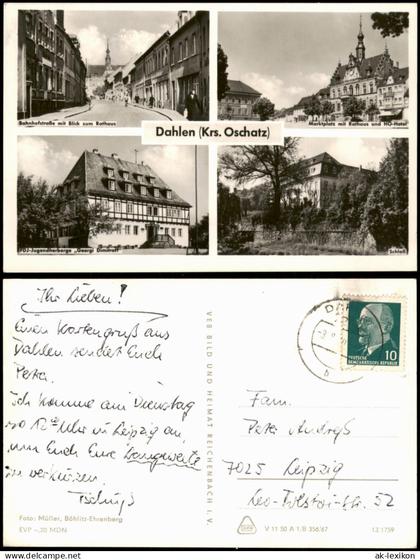 Bahnhofstraße mit Blick zum Rathaus
Marktplatz mit Rathaus und HO-Hotel
Dahlen (Krs. Oschatz)
FDJ-Jugendherberge "Georgi Dimitroff"
Schloß
Ihr Lieben!
Einen Kartengruß aus
Dahlen sendet Euch
Petra.
Ich komme am Dienstag
Uhr in Leipzig an,
um Euch Eure Langeweile
zu verkürzen.
Tschüß
Foto: Müller, Böhlitz-Ehrenberg
EVP -,20 MDN
VEB BILD UND HEIMAT REICHENBACH i. V.
10
DEUTSCHE
DEMOKRATISCHE REPUBLIK
Fam.
Peter
7025 Leipzig
Leo-Tolstoi-Str. 52
V 11 50 A 1/B 356/67
12 1759
© www.ak-ansichtskarten.de ak-lexikon